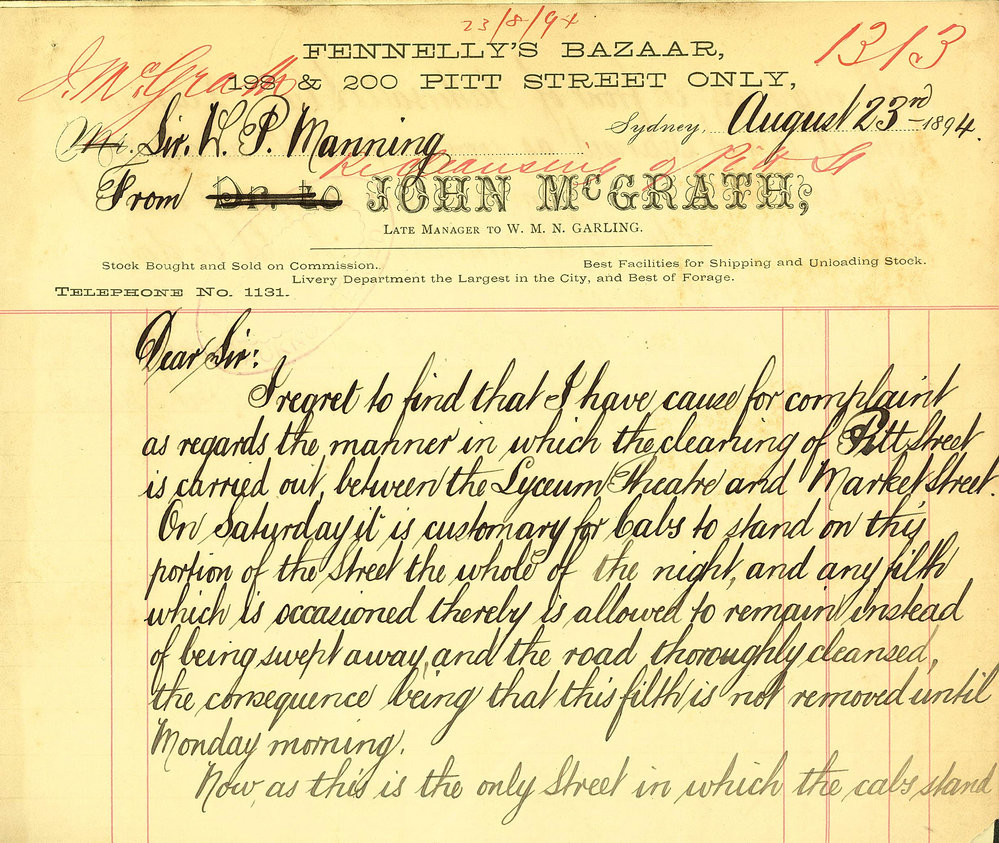 23/8/94
FENNELLY'S BAZAAR,
1313
J. McGrath
198 & 200 PITT STREET ONLY,
Mr. Sir. W. P. Manning
Sydney, August 23rd 1894.
Re cleansing of Pitt St
From Dr. to JOHN McGRATH,
LATE MANAGER TO W. M. N. GARLING.
Stock Bought and Sold on Commission.. Best Facilities for Shipping and Unloading Stock.
Livery Department the Largest in the City, and Best of Forage.
TELEPHONE NO. 1131.
Dear Sir:
I regret to find that I have cause for complaint
as regards the manner in which the cleaning of Pitt Street
is carried out, between the Lyceum Theatre and Market Street.
On Saturday it is customary for Cabs to stand on this
portion of the Street the whole of the night, and any filth
which is occasioned thereby is allowed to remain instead
of being swept away, and the road thoroughly cleansed,
the consequence being that this filth is not removed until
Monday morning.
Now, as this is the only Street in which the cabs stand